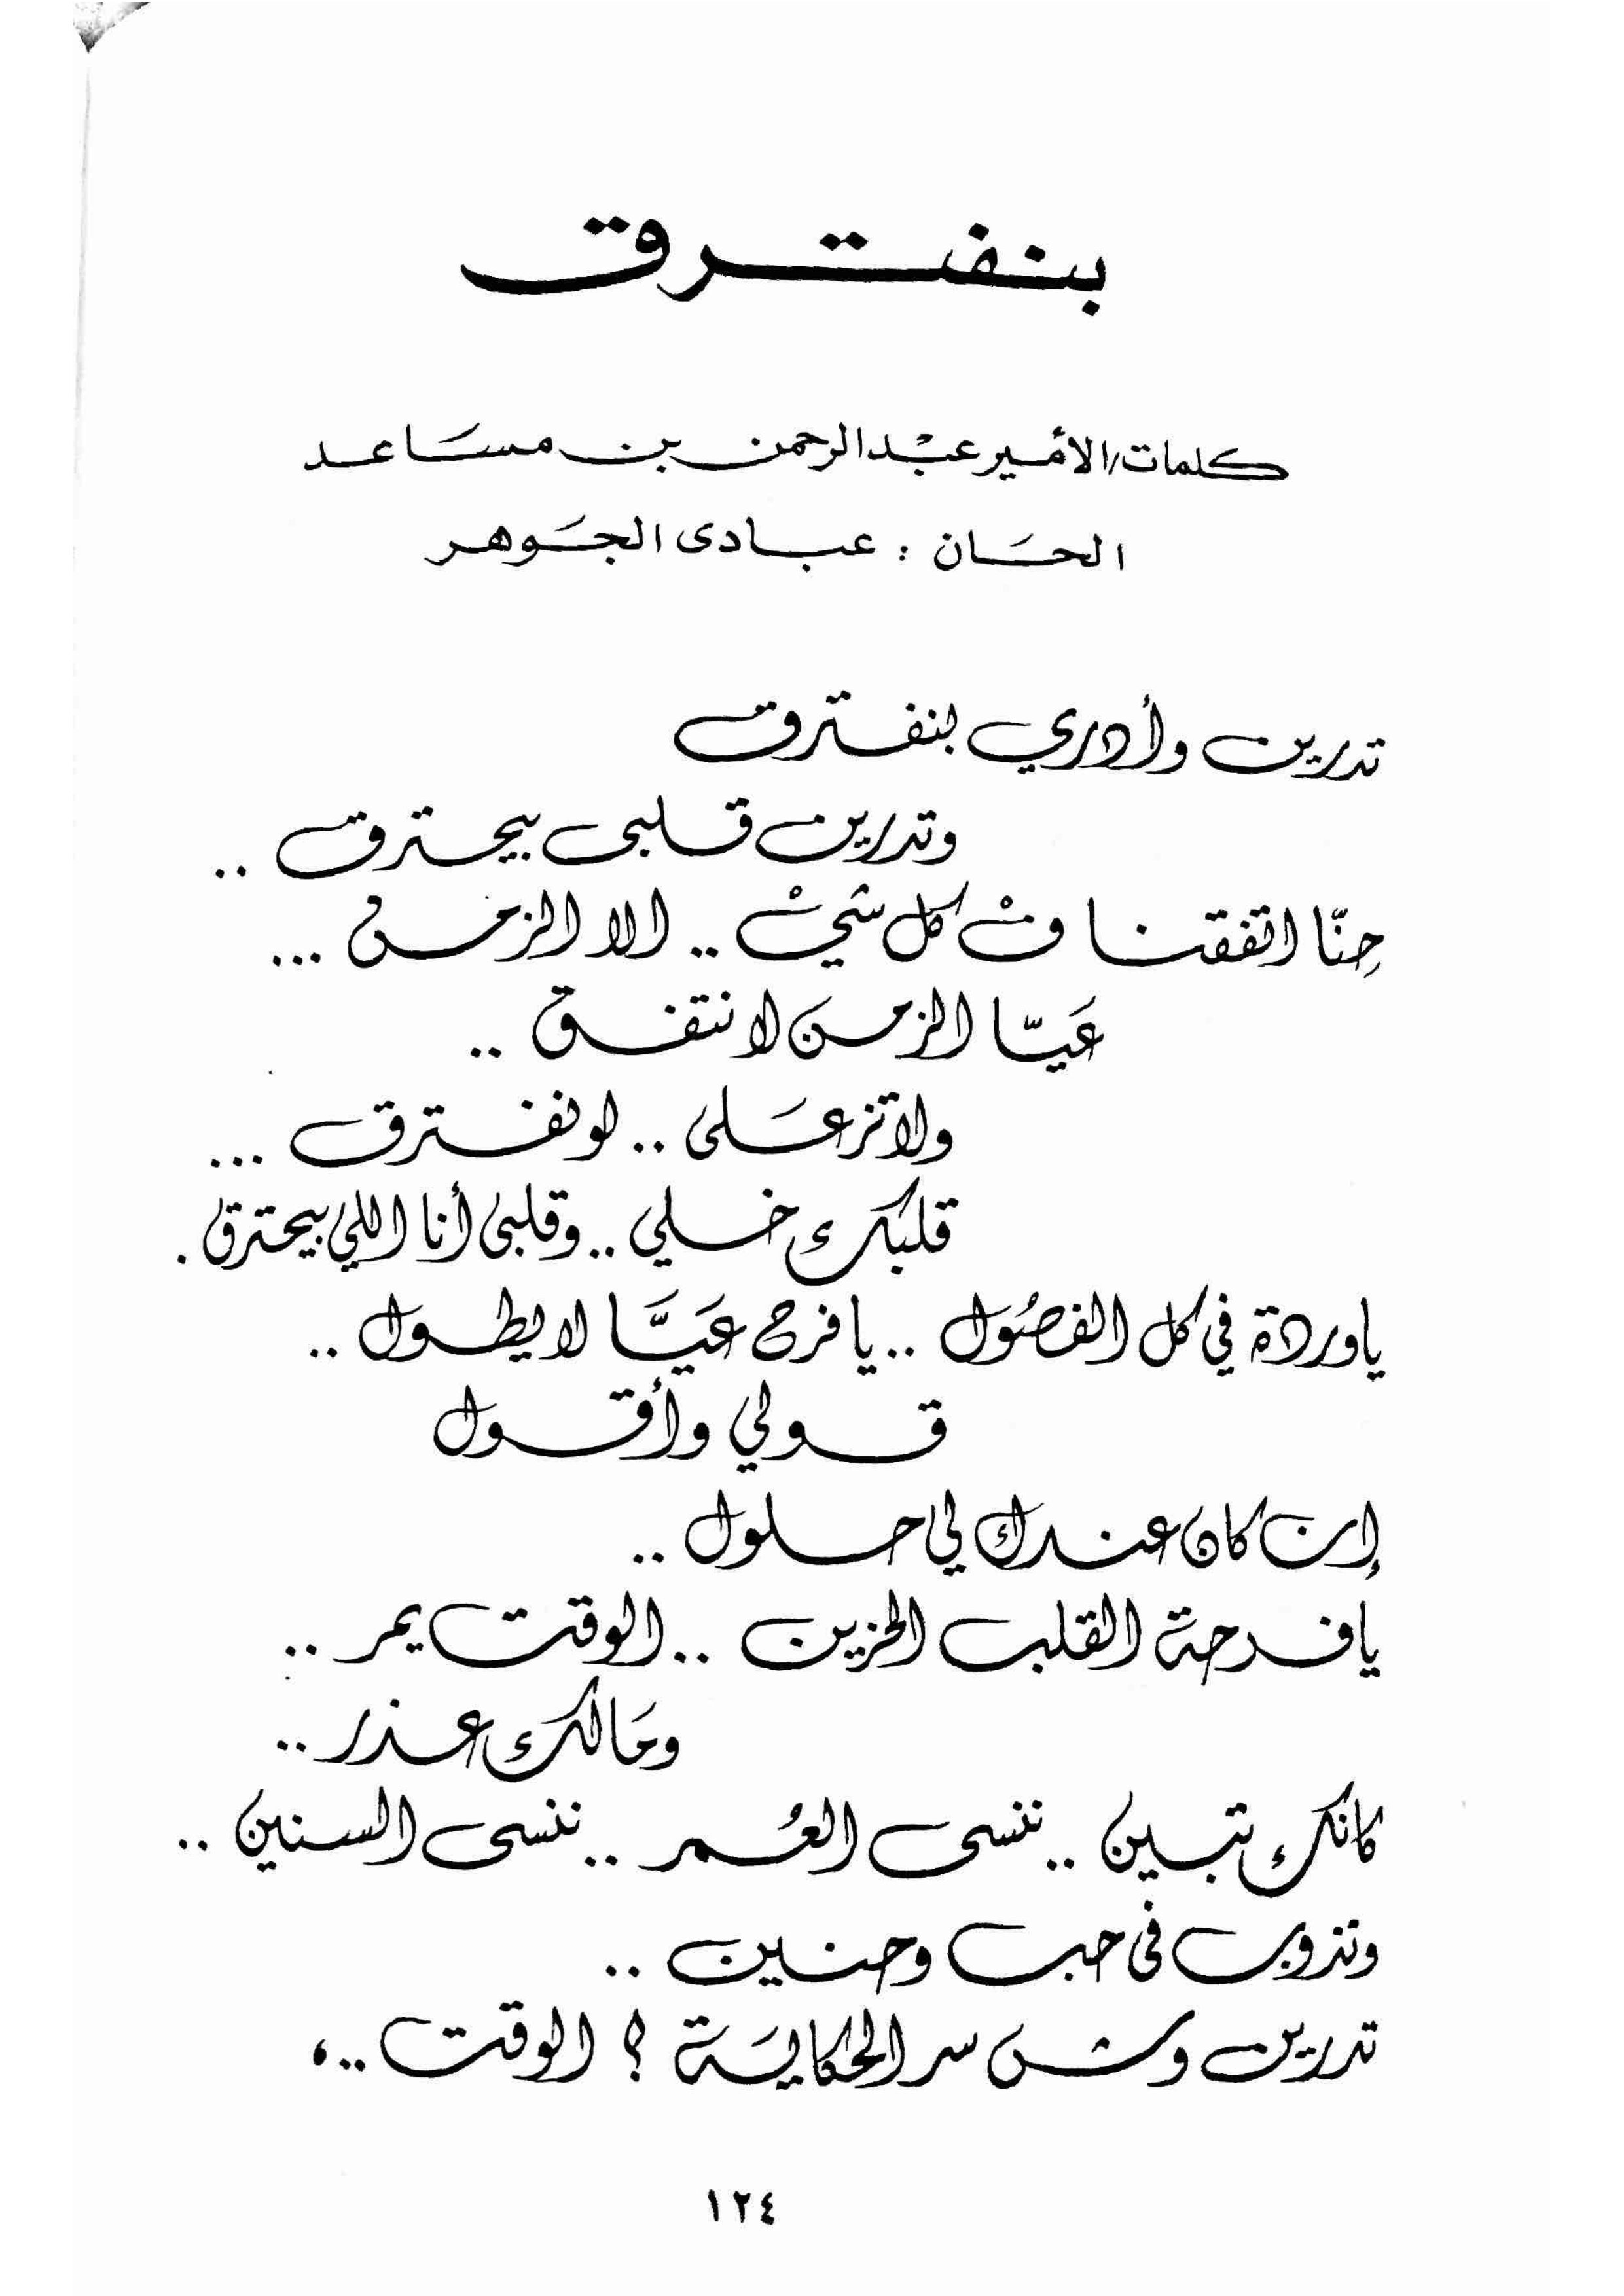 بنفترق
كلمات/الأمير عبْدالرحمن بن مسَاعد
الحَان : عبادى الجَوهر
تدرين وأدري بنفترق
وتدرين قلبى بيحترق ..
حِنّا اتفقنا فْ كل شيْ .. الا الزمن ...
عَيّا الزمن لا نتفق ..
ولا تزعَلى .. لو نفترق ...
قلبك خلي .. وقلبى أنا اللي بيحترق .
يا وردة في كل الفصُول .. يا فرح عَيَّا لا يطول ..
قولي وأقول
إن كان عندك لي حلول ..
يا فرحة القلب الحزين .. الوقت يمر ..
ومَا لك عذر ..
كانك تبين .. ننسى العُمر .. ننسى السنين ..
ونذوب فى حب وحنين ..
تدرين وش سر الحكايَة ؟ الوقت ..،
١٢٤